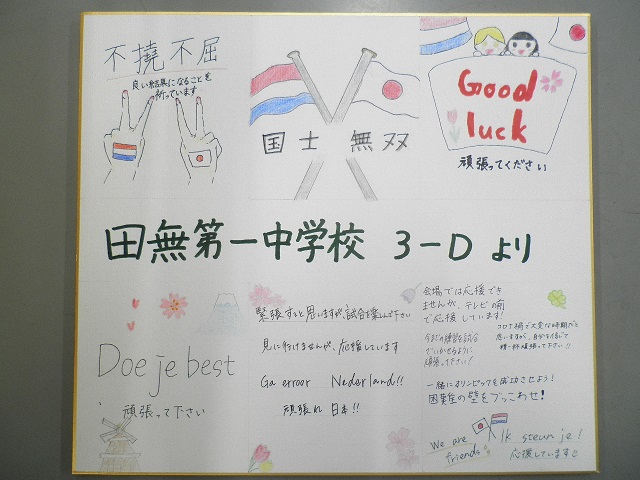 不撓不屈
良い結果になることを
祈っています
国士無双
Good
luck
頑張ってください
田無第一中学校 3-D より
Doe je best
頑張って下さい
緊張すると思いますが試合を楽しんで下さい
見に行けませんが、応援しています
Ga ervoor Nederland!!
頑張れ 日本!!
会場では応援でき
ませんが、テレビの前
で応援しています!
今までの練習を試合
でいかせるように
頑張って下さい!
コロナ禍で大変な時期だと
思いますが、自分を信じて
精一杯頑張って下さい!!
一緒にオリンピックを成功させよう!
困難の壁をぶっこわせ!
We are
friends
Ik steun je!
応援しています